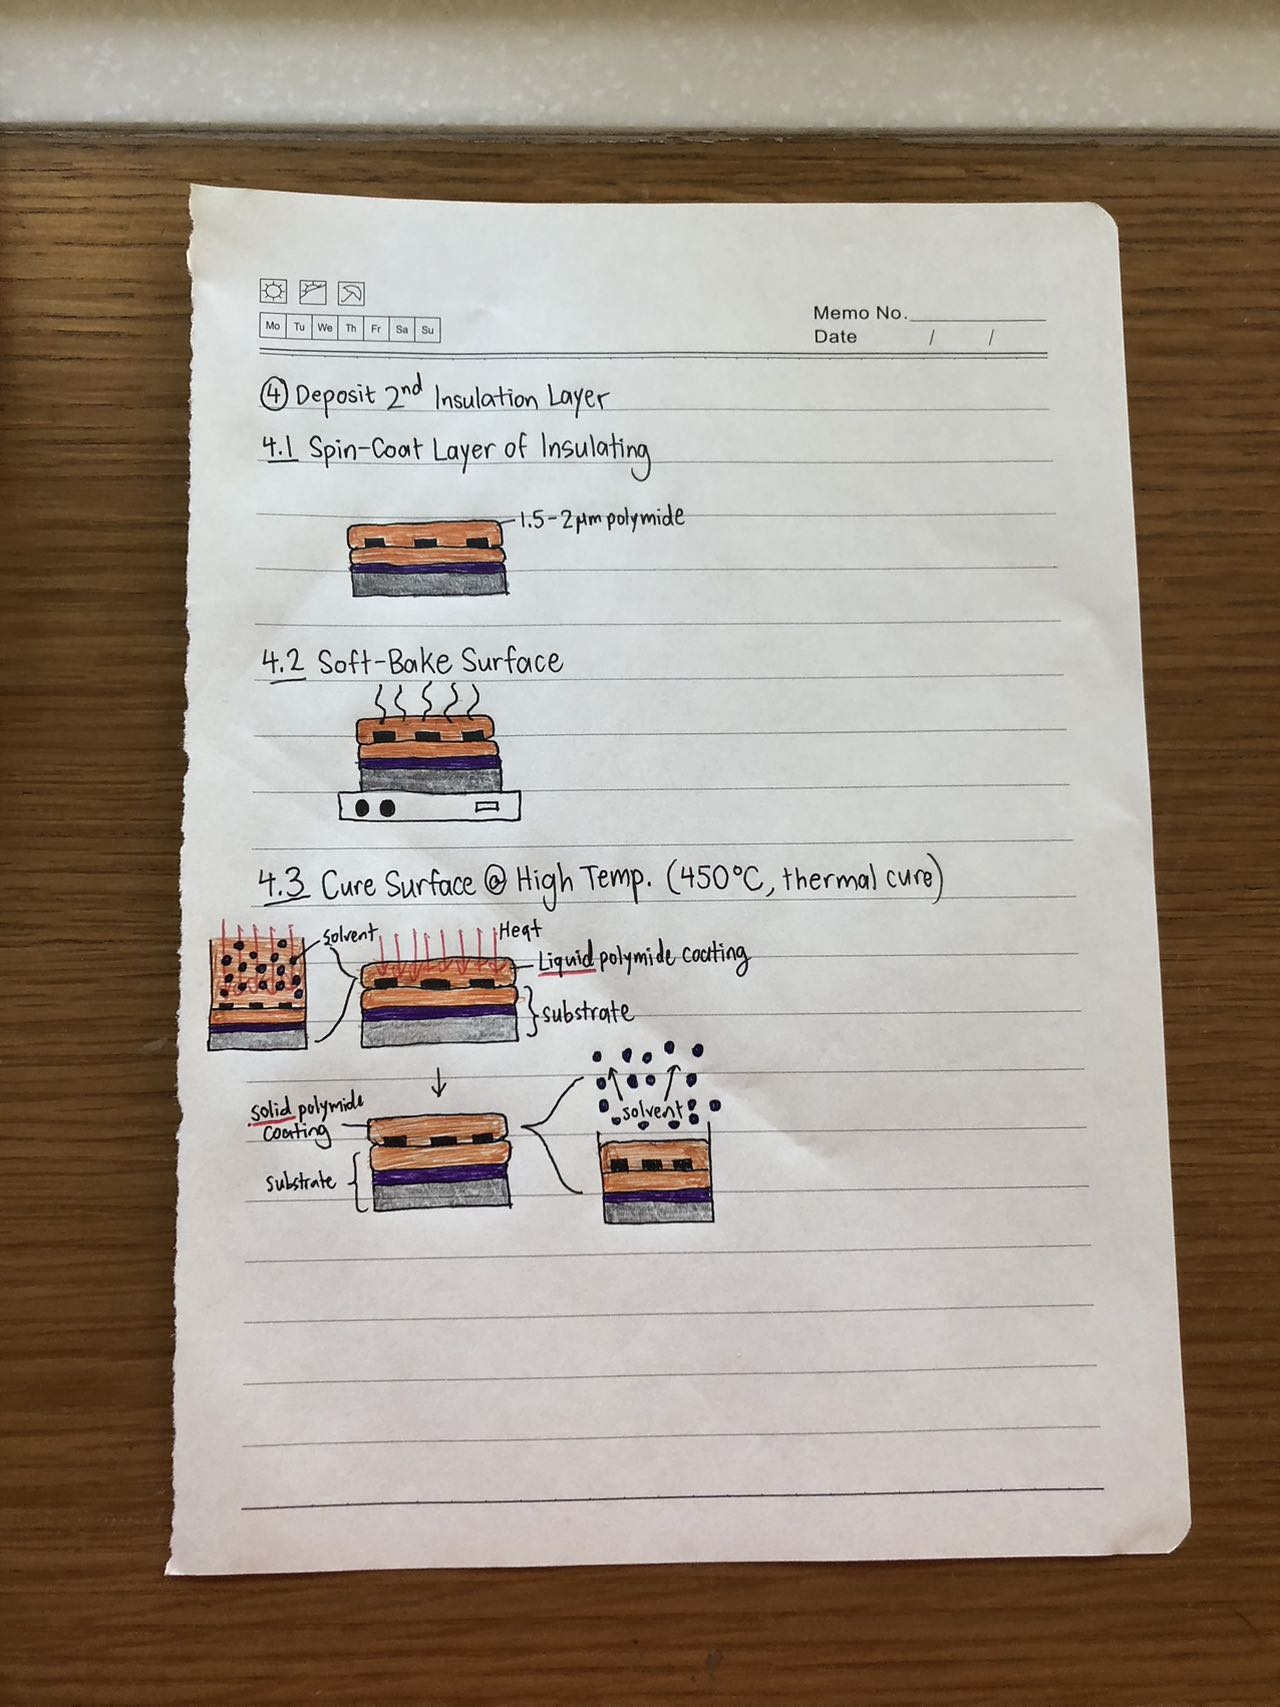 Mo Tu We Th Fr Sa Su
Memo No.
Date / /
④ Deposit 2nd Insulation Layer
4.1 Spin-Coat Layer of Insulating
1.5-2μm polymide
4.2 Soft-Bake Surface
4.3 Cure Surface @ High Temp. (450°C, thermal cure)
solvent
Heat
Liquid polymide coating
substrate
solid polymide
coating
solvent
substrate